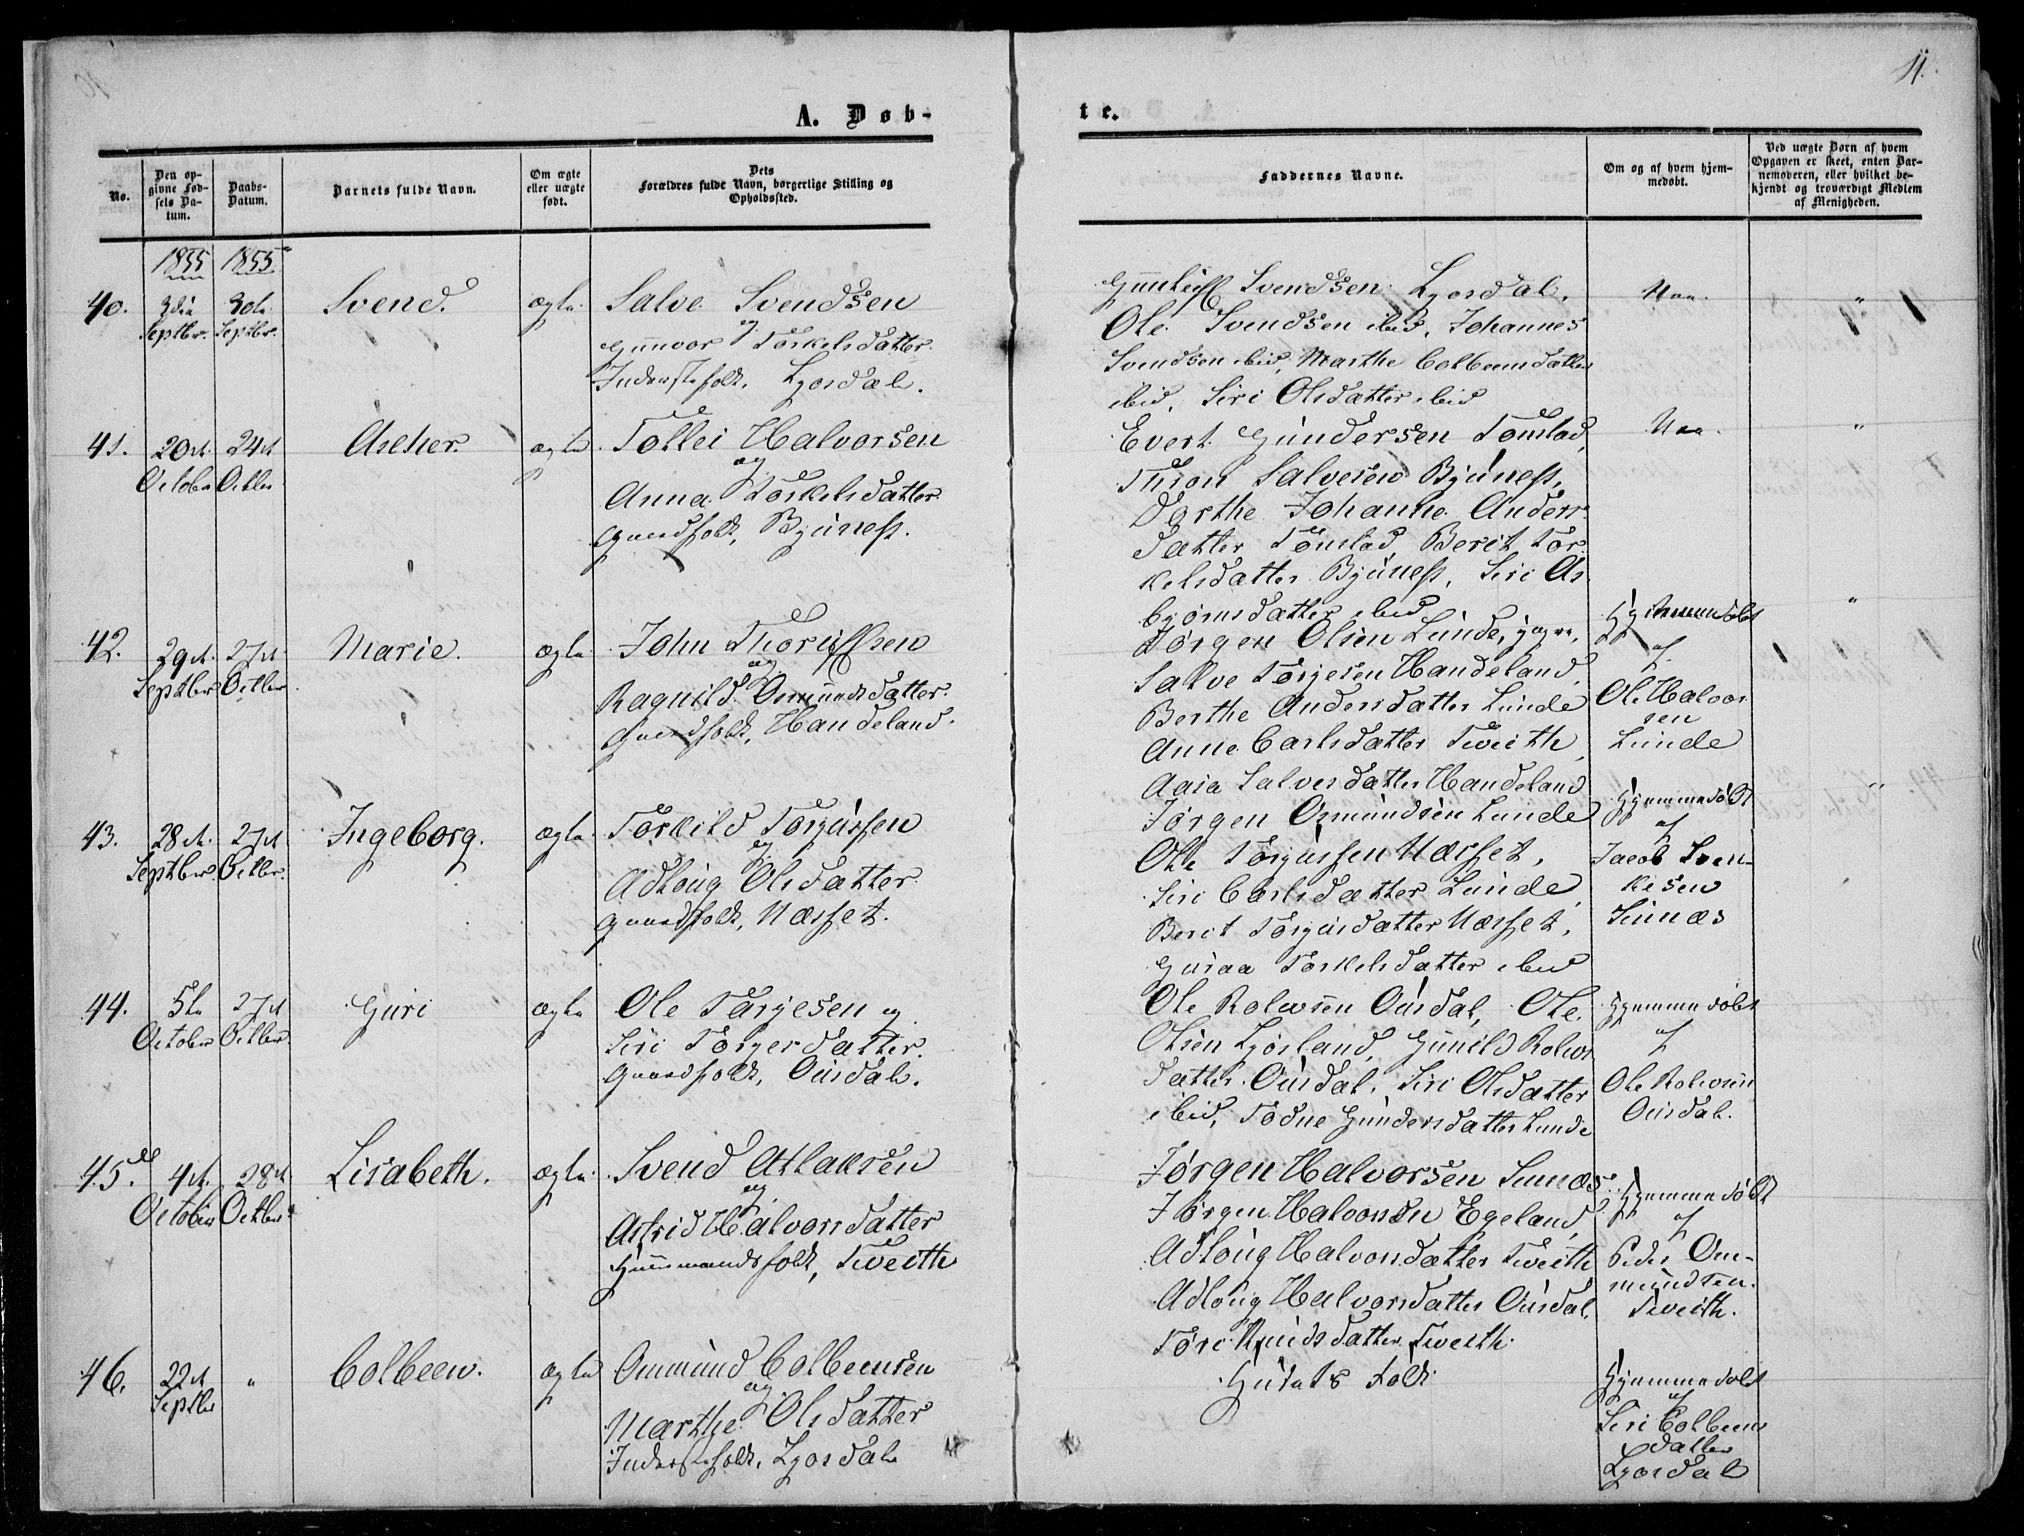 11.
A. Døb-
te.
No.
Den op-
givne Fød-
sels Da-
tum.
Daabs-
Datum.
Barnets fulde Navn.
Om ægte
eller uægte
født.
Dets
Forældres fulde Navn, borgerlige Stilling og
Opholdssted.
Faddernes Navne.
Om og af hvem hjem-
medøbt.
Ved uægte Børn af hvem
Opgaven er skeet, enten Bar-
nemoderen, eller hvilket be-
kjendt og troværdigt Medlem
af Menigheden.
1855 1855
40.
Septbr. Septbr.
Svend.
ægte
Salve Svendsen
og
Gunvor Torkelsdatter
Inderstefolk, Ljosdal.
Svendsen Ljosdal,
Ole Svendsen ibid, Johannes
Svendsen ibid, Marthe Colbeensdatter
ibid, Siri Olsdatter ibid
Naa.
"
41.
20de 24de
October Octbr
Ascher
ægte
Tollei Halvorsen
og
Anna Torkelsdatter
Gaardfolk, Bjuness.
Evert Gundersen Tonstad,
Thron Salvesen Bjuness,
Dorthe Johanne Anders-
datter Tonstad, Berit Tor-
kelsdatter Bjuness, Siri As-
bjørnsdatter ibid
"
42.
29de 27de
Septbr Octbr.
Marie.
ægte
John
og
Ragnild Osmundsdatter
Gaardfolk, Handeland.
Jørgen Olsen Lunde,
Salve Torjesen Handeland,
Berthe Andersdatter Lunde
Anne Carlsdatter Tveith,
Aasa Salvesdatter Handeland
Hjemmedøbt
af
Ole Halvor
sen
Lunde
"
43.
28de 27de
Septbr. Octbr.
Ingeborg.
ægte
Torkild Torjussen
og
Adloug Olsdatter
Gaardfolk, Næsset.
Jørgen Osmundsen Lunde
Ole Torjussen Næsset,
Siri Carlsdatter Lunde,
Berit Torjusdatter Næsset,
Torkelsdatter ibid
Hjemmedøbt
af
Jacob Sven-
kesen
Sinnæs
"
44.
5te 27de
October Octbr.
Guri
ægte
Ole Tarjesen og
Siri Torgersdatter
Gaardfolk, Ousdal.
Ole Rolvsen Ousdal, Ole
Olsen Ljosland, Gunild Rolvs
datter Ousdal, Siri Olsdatter
ibid, Todne Gundersdatter Lunde
Hjemmedøbt
af
Ole Rolvsen
Ousdal.
45.
4de 28de
October Octbr.
Lisabeth.
ægte
Svend Aslaksen
og
Astrid Halvorsdatter
Huusmandsfolk, Tveith
Jørgen Halvorsen Sinnæs
Jørgen Halvorsen Egeland,
Adloug Halvorsdatter Tveith
Adloug Halvorsdatter Ousdal,
Tore Knudsdatter Tveith.
Hjemmedøbt
af
Peder Om-
mundsen
Tveith.
46.
22de
Septbr
"
Colbeen.
ægte
Ommund Colbeensen
og
Marthe Olsdatter
Inderstefolk, Ljosdal
Husets Folk
Hjemmedøbt
af
Siri Colbeens
datter
Ljosdal